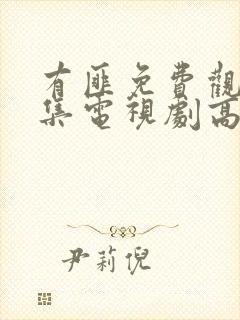 有匪免費觀
集電視劇高
尹莉倪